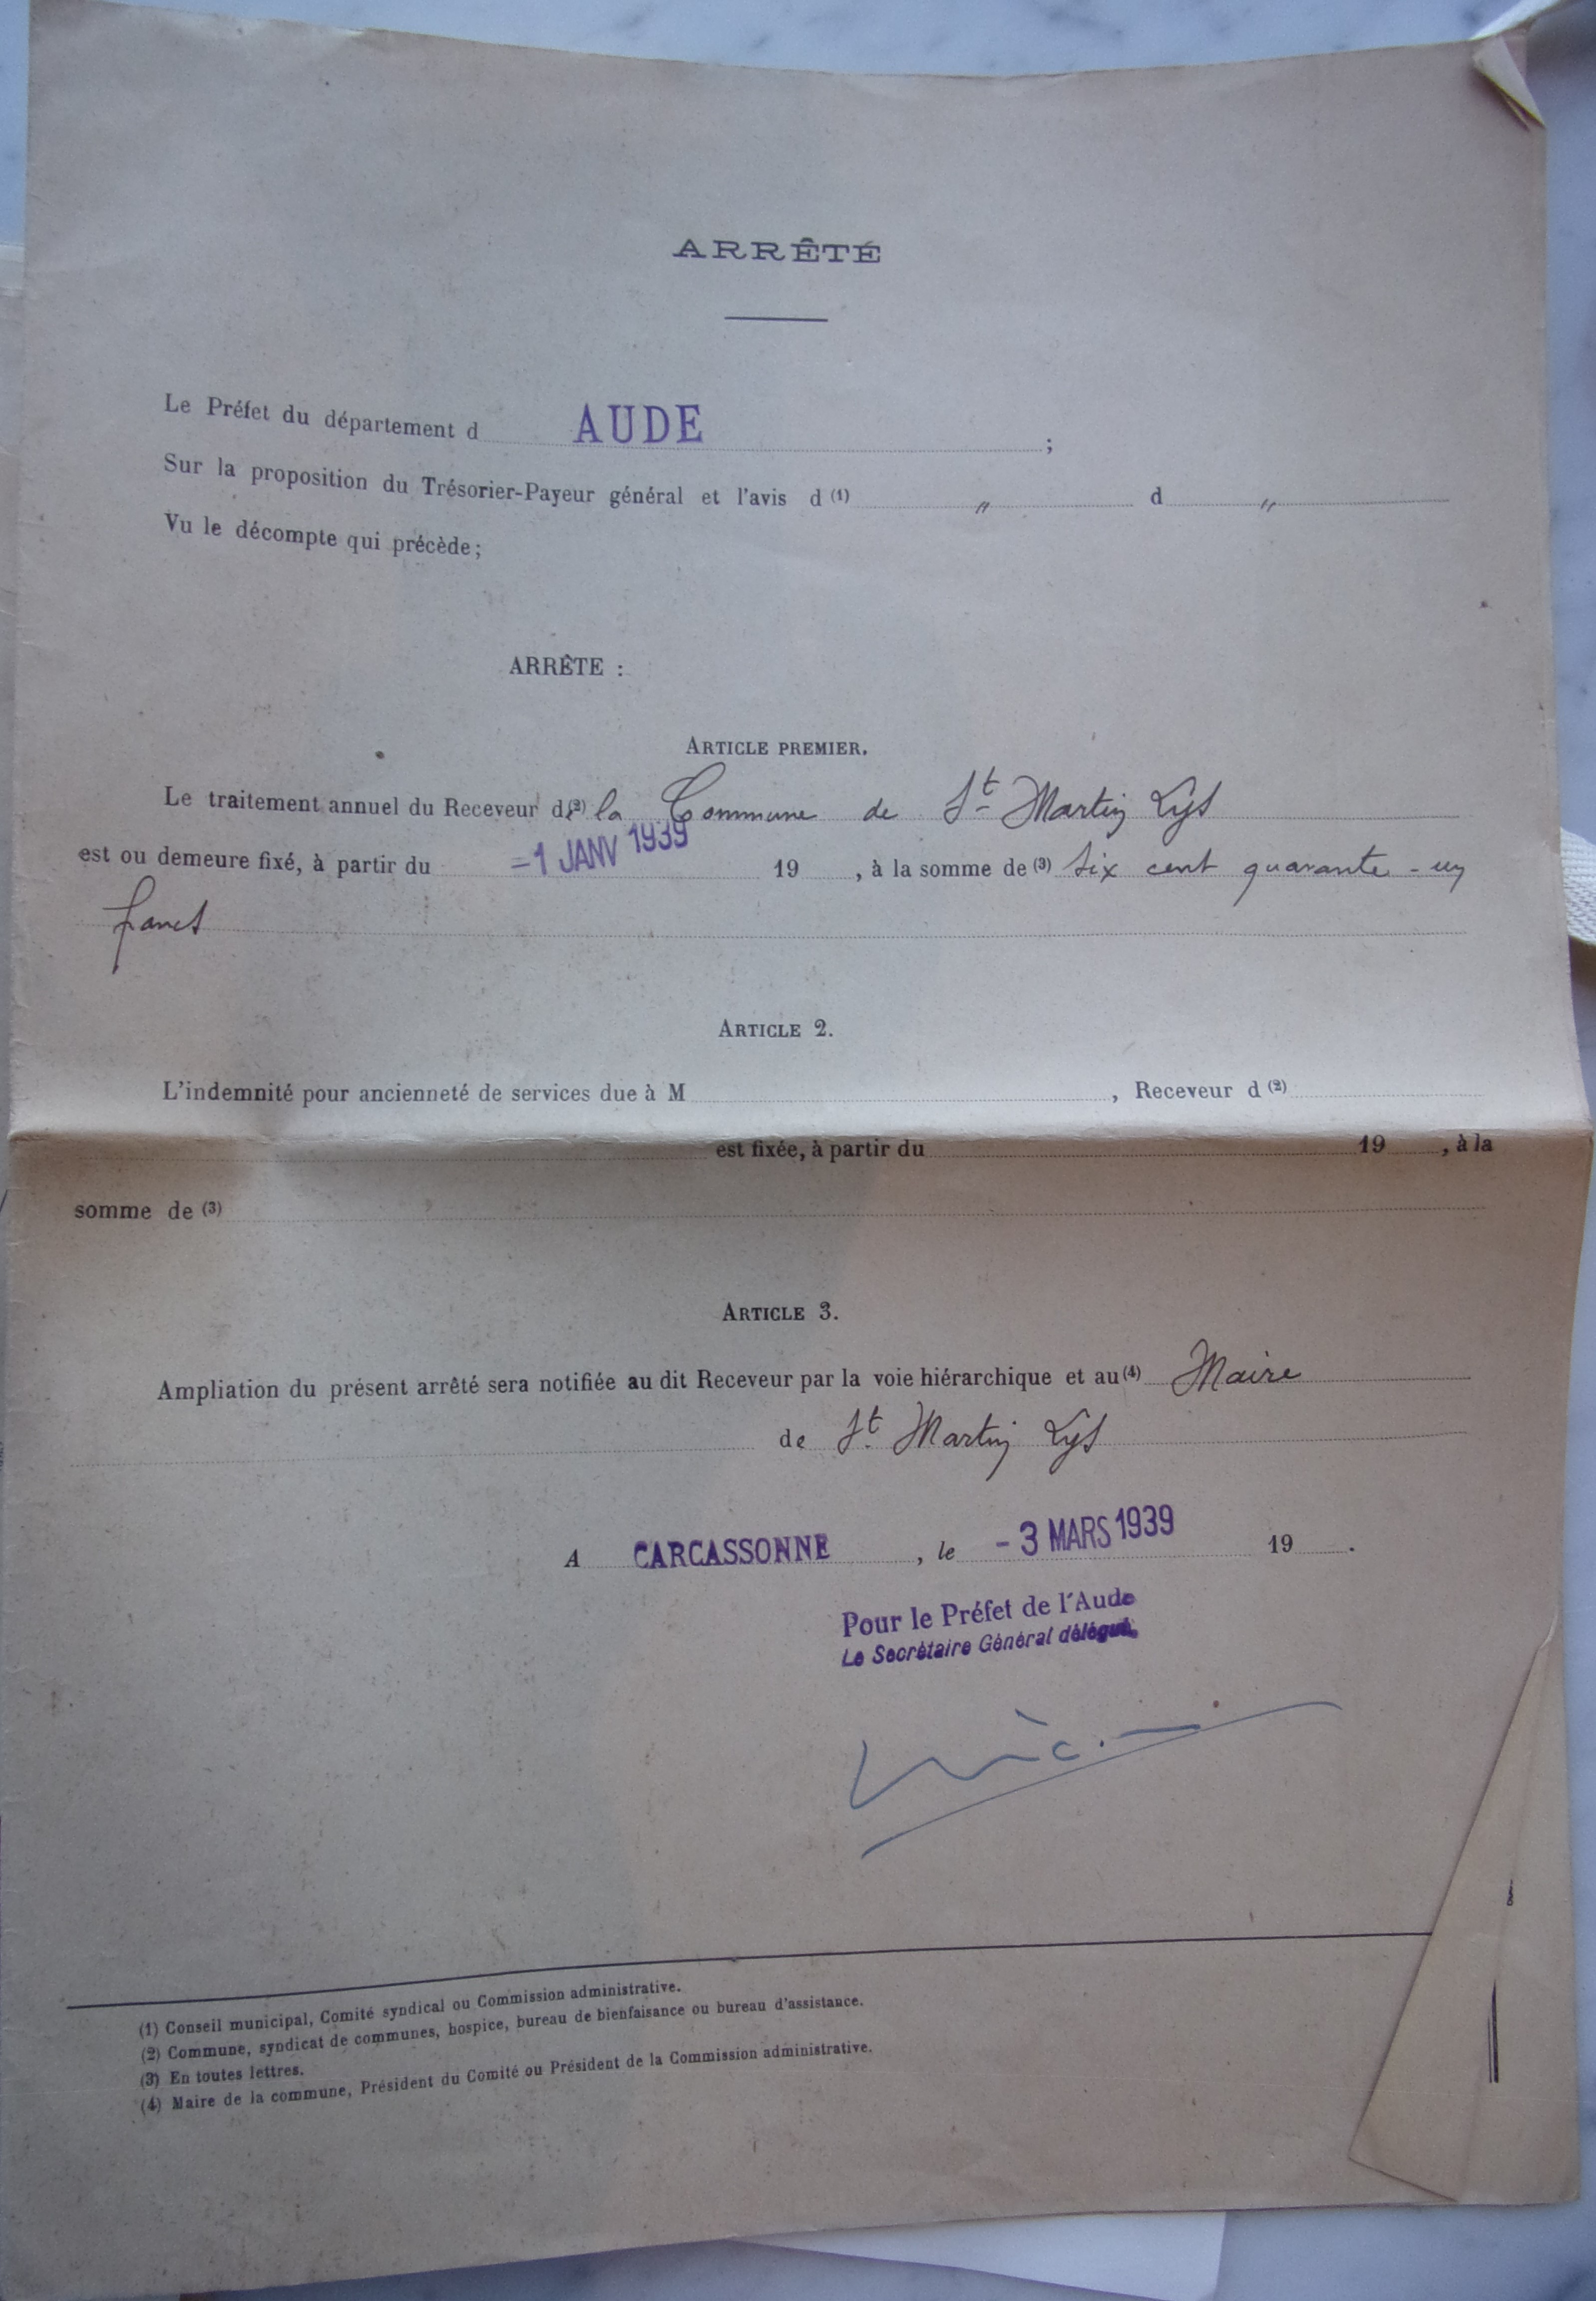 ARRÊTÉ
Le Préfet du département d AUDE ;
Sur la proposition du Trésorier-Payeur général et l'avis d (1) " d "
Vu le décompte qui précède ;
ARRÊTE :
ARTICLE PREMIER.
Le traitement annuel du Receveur d (2) la Commune de St Martin Lys
est ou demeure fixé, à partir du -1 JANV 1939 19 , à la somme de (3) six cent quarante - un
francs
ARTICLE 2.
L'indemnité pour ancienneté de services due à M , Receveur d (2)
est fixée, à partir du 19 , à la
somme de (3)
ARTICLE 3.
Ampliation du présent arrêté sera notifiée au dit Receveur par la voie hiérarchique et au (4) Maire
de St Martin Lys
A CARCASSONNE , le - 3 MARS 1939 19 .
Pour le Préfet de l'Aude
Le Secrétaire Général délégué,
(1) Conseil municipal, Comité syndical ou Commission administrative.
(2) Commune, syndicat de communes, hospice, bureau de bienfaisance ou bureau d'assistance.
(3) En toutes lettres.
(4) Maire de la commune, Président du Comité ou Président de la Commission administrative.